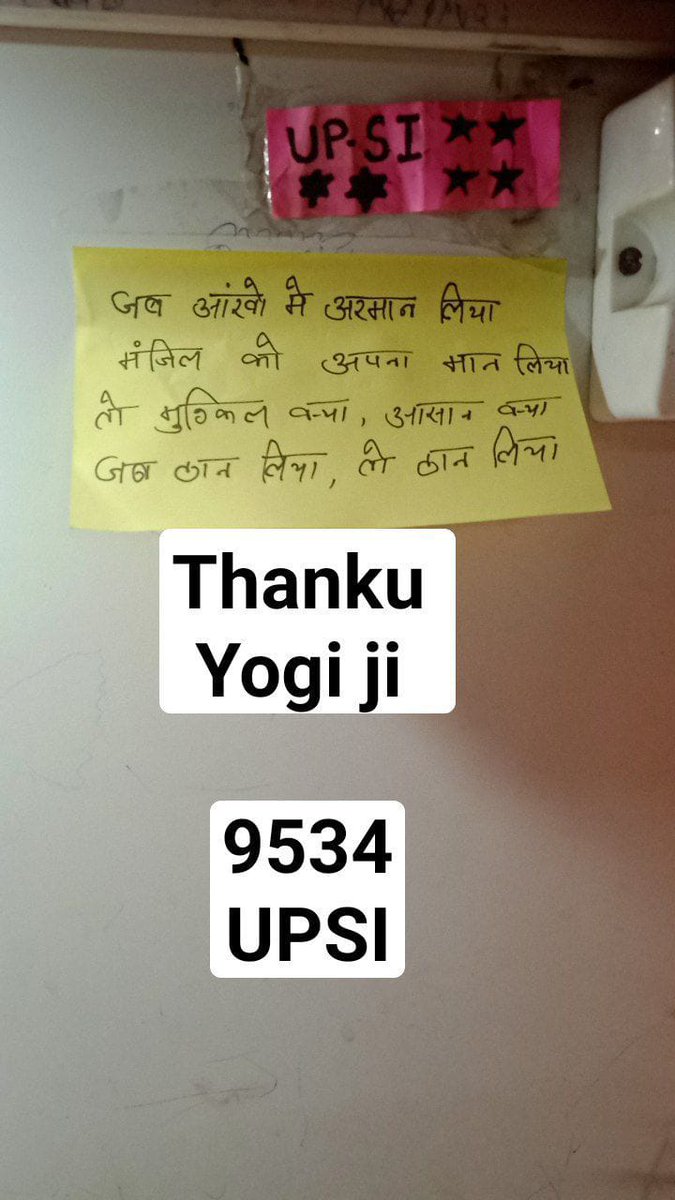 UP-SI ★★
★★ ★★
जब आंखो मे अरमान लिया
मंजिल को अपना मान लिया
तो मुश्किल क्या, आसान क्या
जब ठान लिया, तो ठान लिया
Thanku
Yogi ji
9534
UPSI